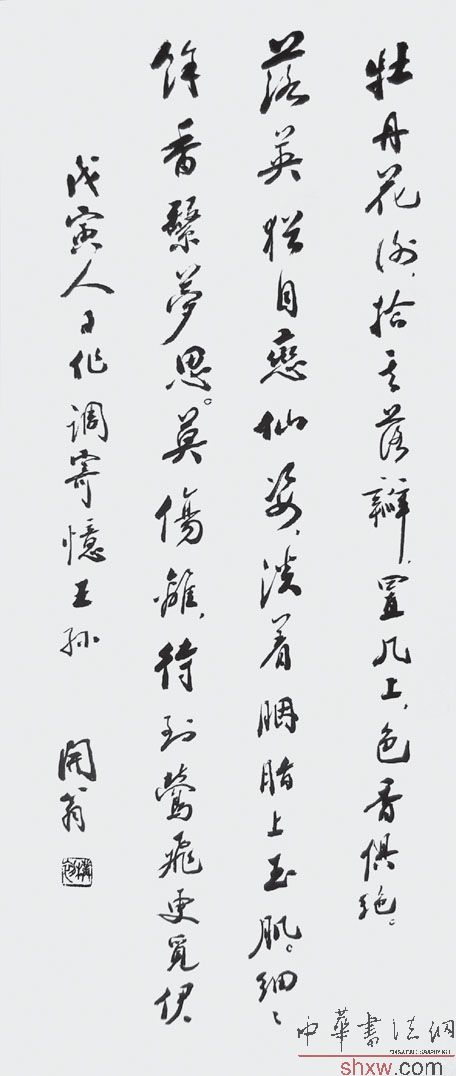 牡丹花谢，拾其落瓣，置几上，色香俱绝。
落英犹自恋仙姿，淡着胭脂上玉肌。细々
馀香繫夢思。莫傷離，待到鶯飛更覓伊
戊寅人日作调寄憶王孙
開翁
中華書法網
shxw.com